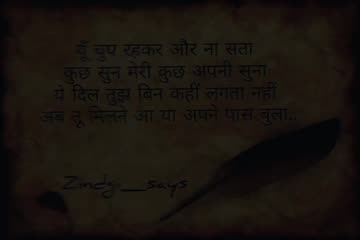 यूँ चुप रहकर और ना सता
कुछ सुन मेरी कुछ अपनी सुना
ये दिल तुझ बिन कहीं लगता नहीं
अब तू मिलने आ या अपने पास बुला..
Zindgi__says